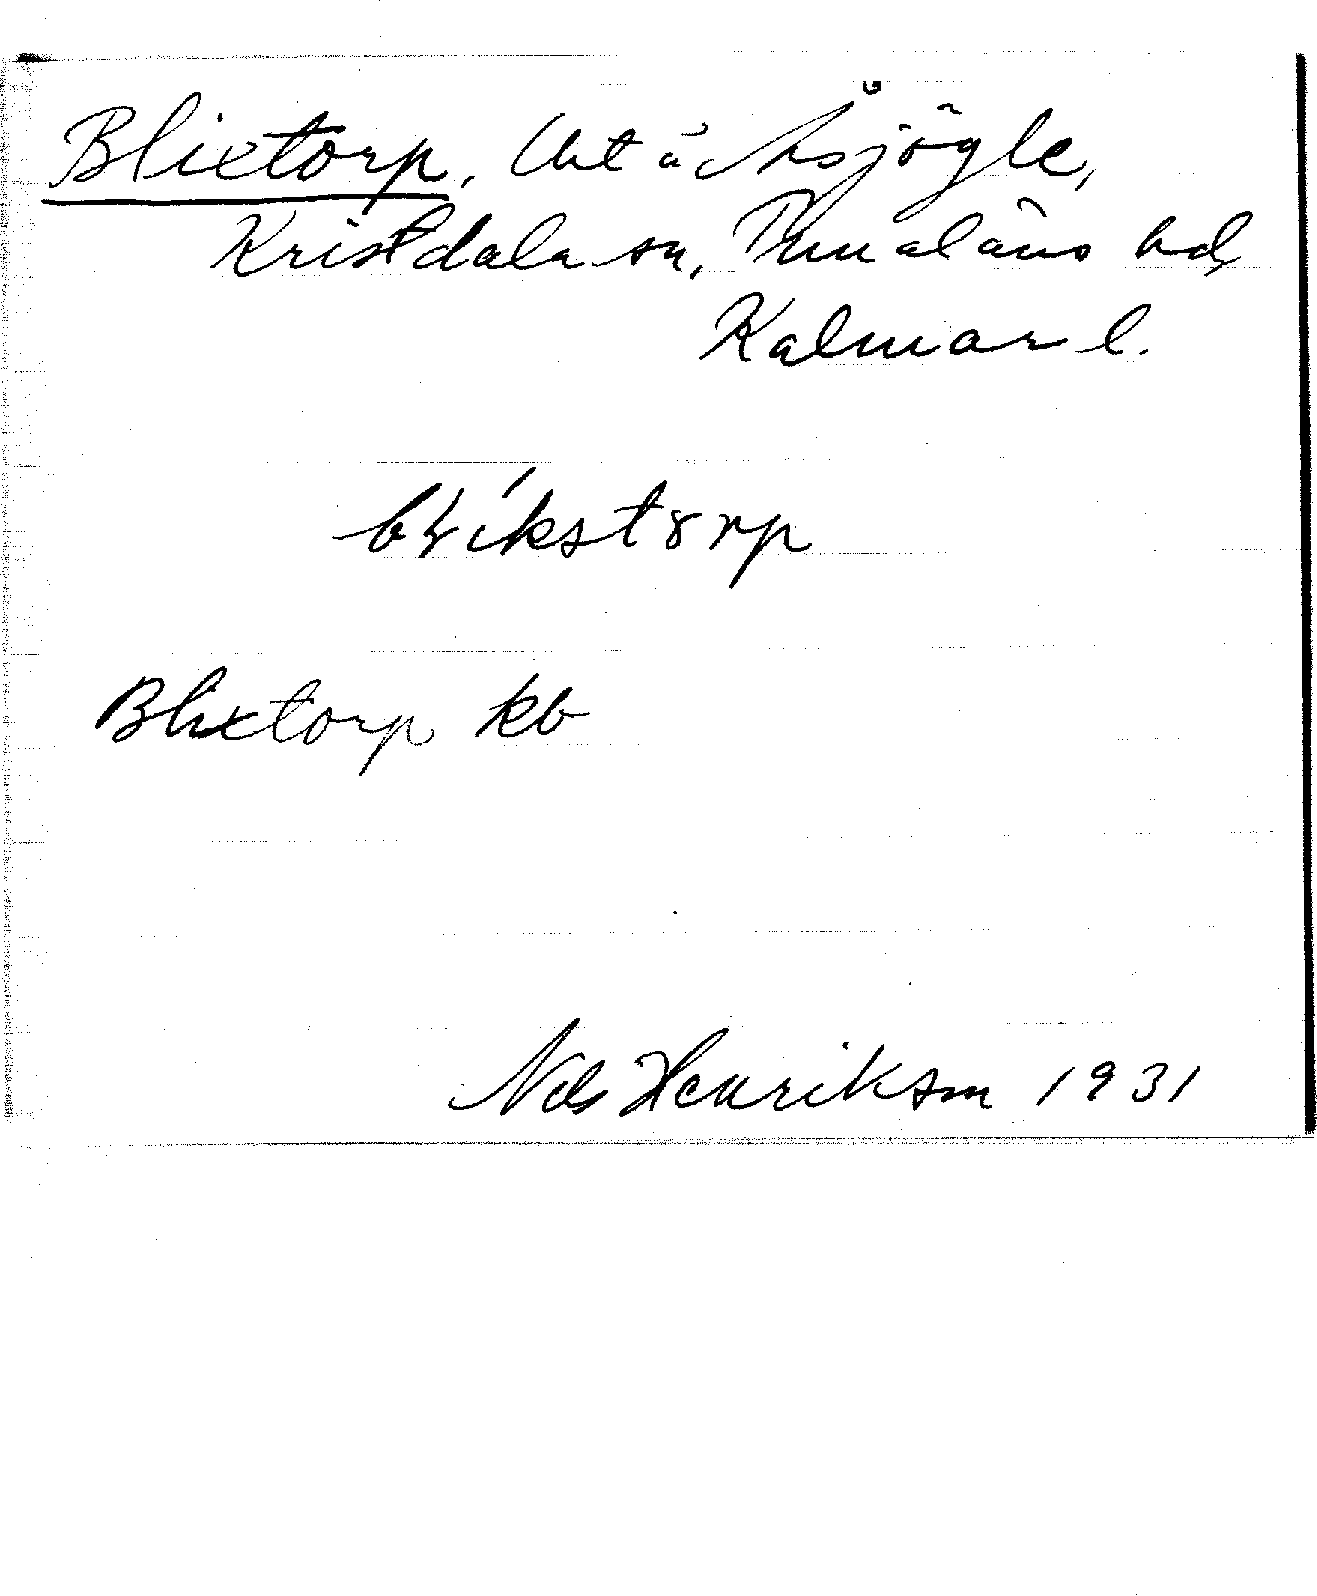 Blixtorp, lht å Åsjögle,
Kristdala sn, Tunaläns hd,
Kalmar l.
blíkstɤrp
Blixtorp kb
Nils Henriksson 1931